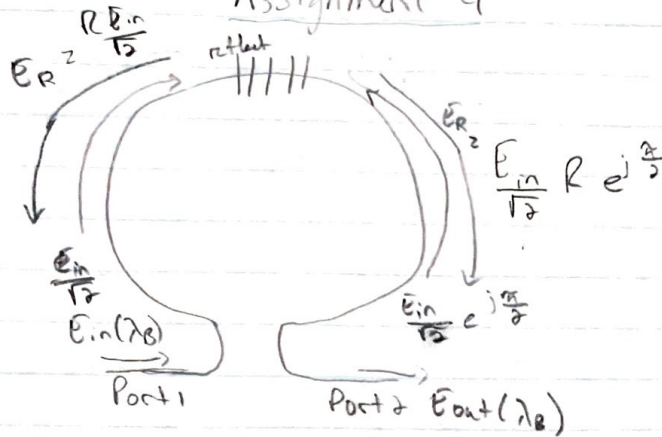 Assignment 4
R Ein/√2
ER =
reflect
ER =
Ein/√2 R e^jπ/2
Ein/√2
Ein/√2 e^jπ/2
Ein(λB)
Port 1
Port 2 Eout(λB)